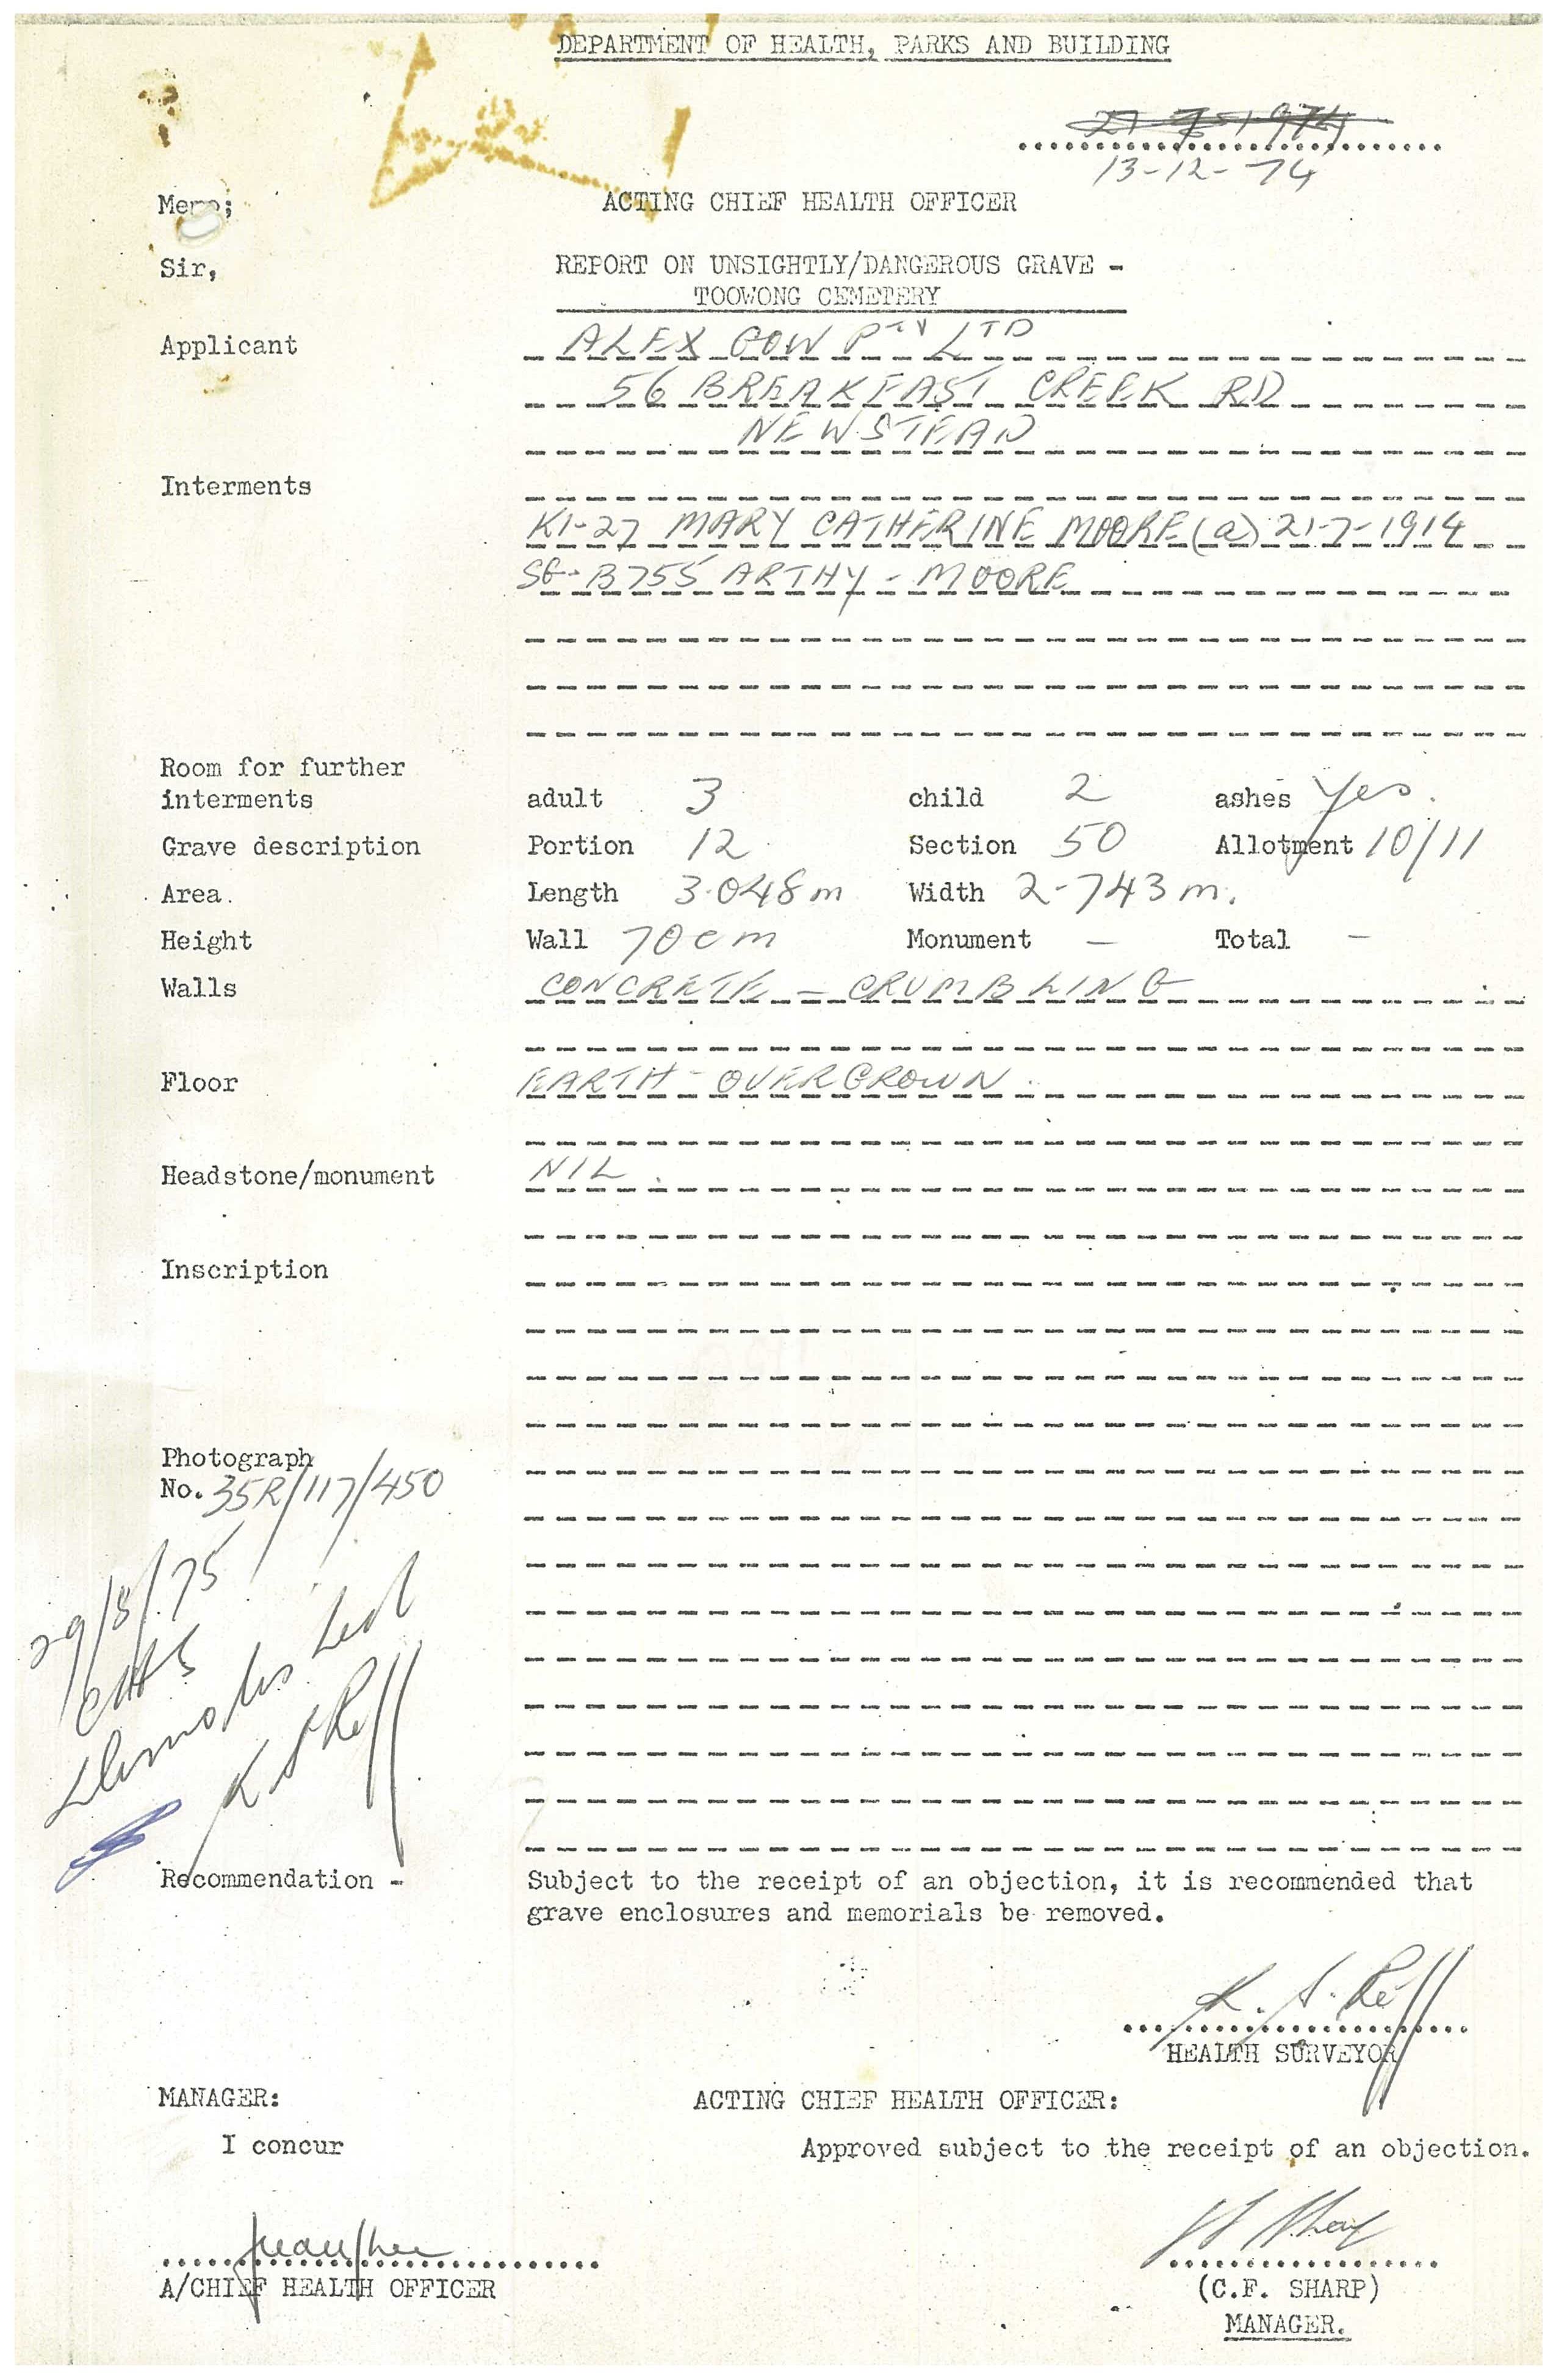 DEPARTMENT OF HEALTH, PARKS AND BUILDING
13-12-74
Memo;
ACTING CHIEF HEALTH OFFICER
Sir,
REPORT ON UNSIGHTLY/DANGEROUS GRAVE -
TOOWONG CEMETERY
Applicant ALEX GOW PTY LTD
56 BREAKFAST CREEK RD
NEWSTEAD
Interments
K1-27 MARY CATHERINE MOORE (a) 21-7-1914
SG-B755 ARTHY - MOORE
Room for further
interments adult 3 child 2 ashes Yes.
Grave description Portion 12 Section 50 Allotment 10/11
Area. Length 3.048m Width 2-743m.
Height Wall 70cm Monument — Total —
Walls CONCRETE - CRUMBLING
Floor EARTH - OVERGROWN.
Headstone/monument NIL.
Inscription
Photograph
No. 35R/117/450
29/8/75
Demolished
Recommendation - Subject to the receipt of an objection, it is recommended that
grave enclosures and memorials be removed.
K. S. Reff
HEALTH SURVEYOR
MANAGER: ACTING CHIEF HEALTH OFFICER:
I concur Approved subject to the receipt of an objection.
A/CHIEF HEALTH OFFICER
(C.F. SHARP)
MANAGER.